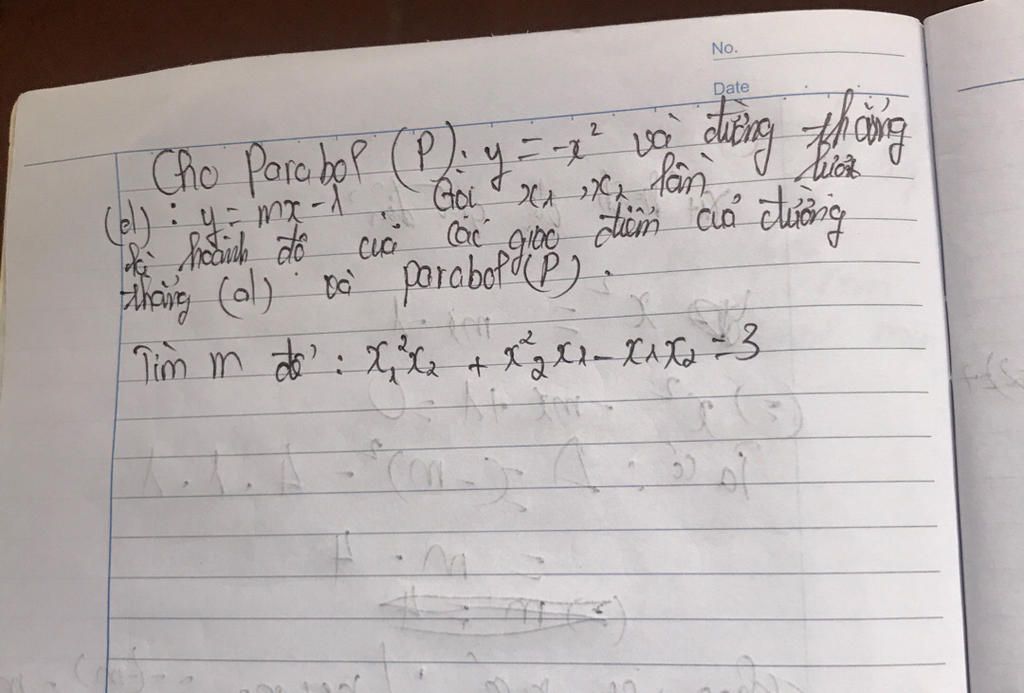 No.
Date
Cho Parabol (P): y = -x² và đường thẳng
(d): y = mx - 1. Gọi x₁, x₂ lần lượt
là hoành độ của các giao điểm của đường
thẳng (d) và parabol (P).
Tìm m để: x₁²x₂ + x₂²x₁ - x₁x₂ = 3